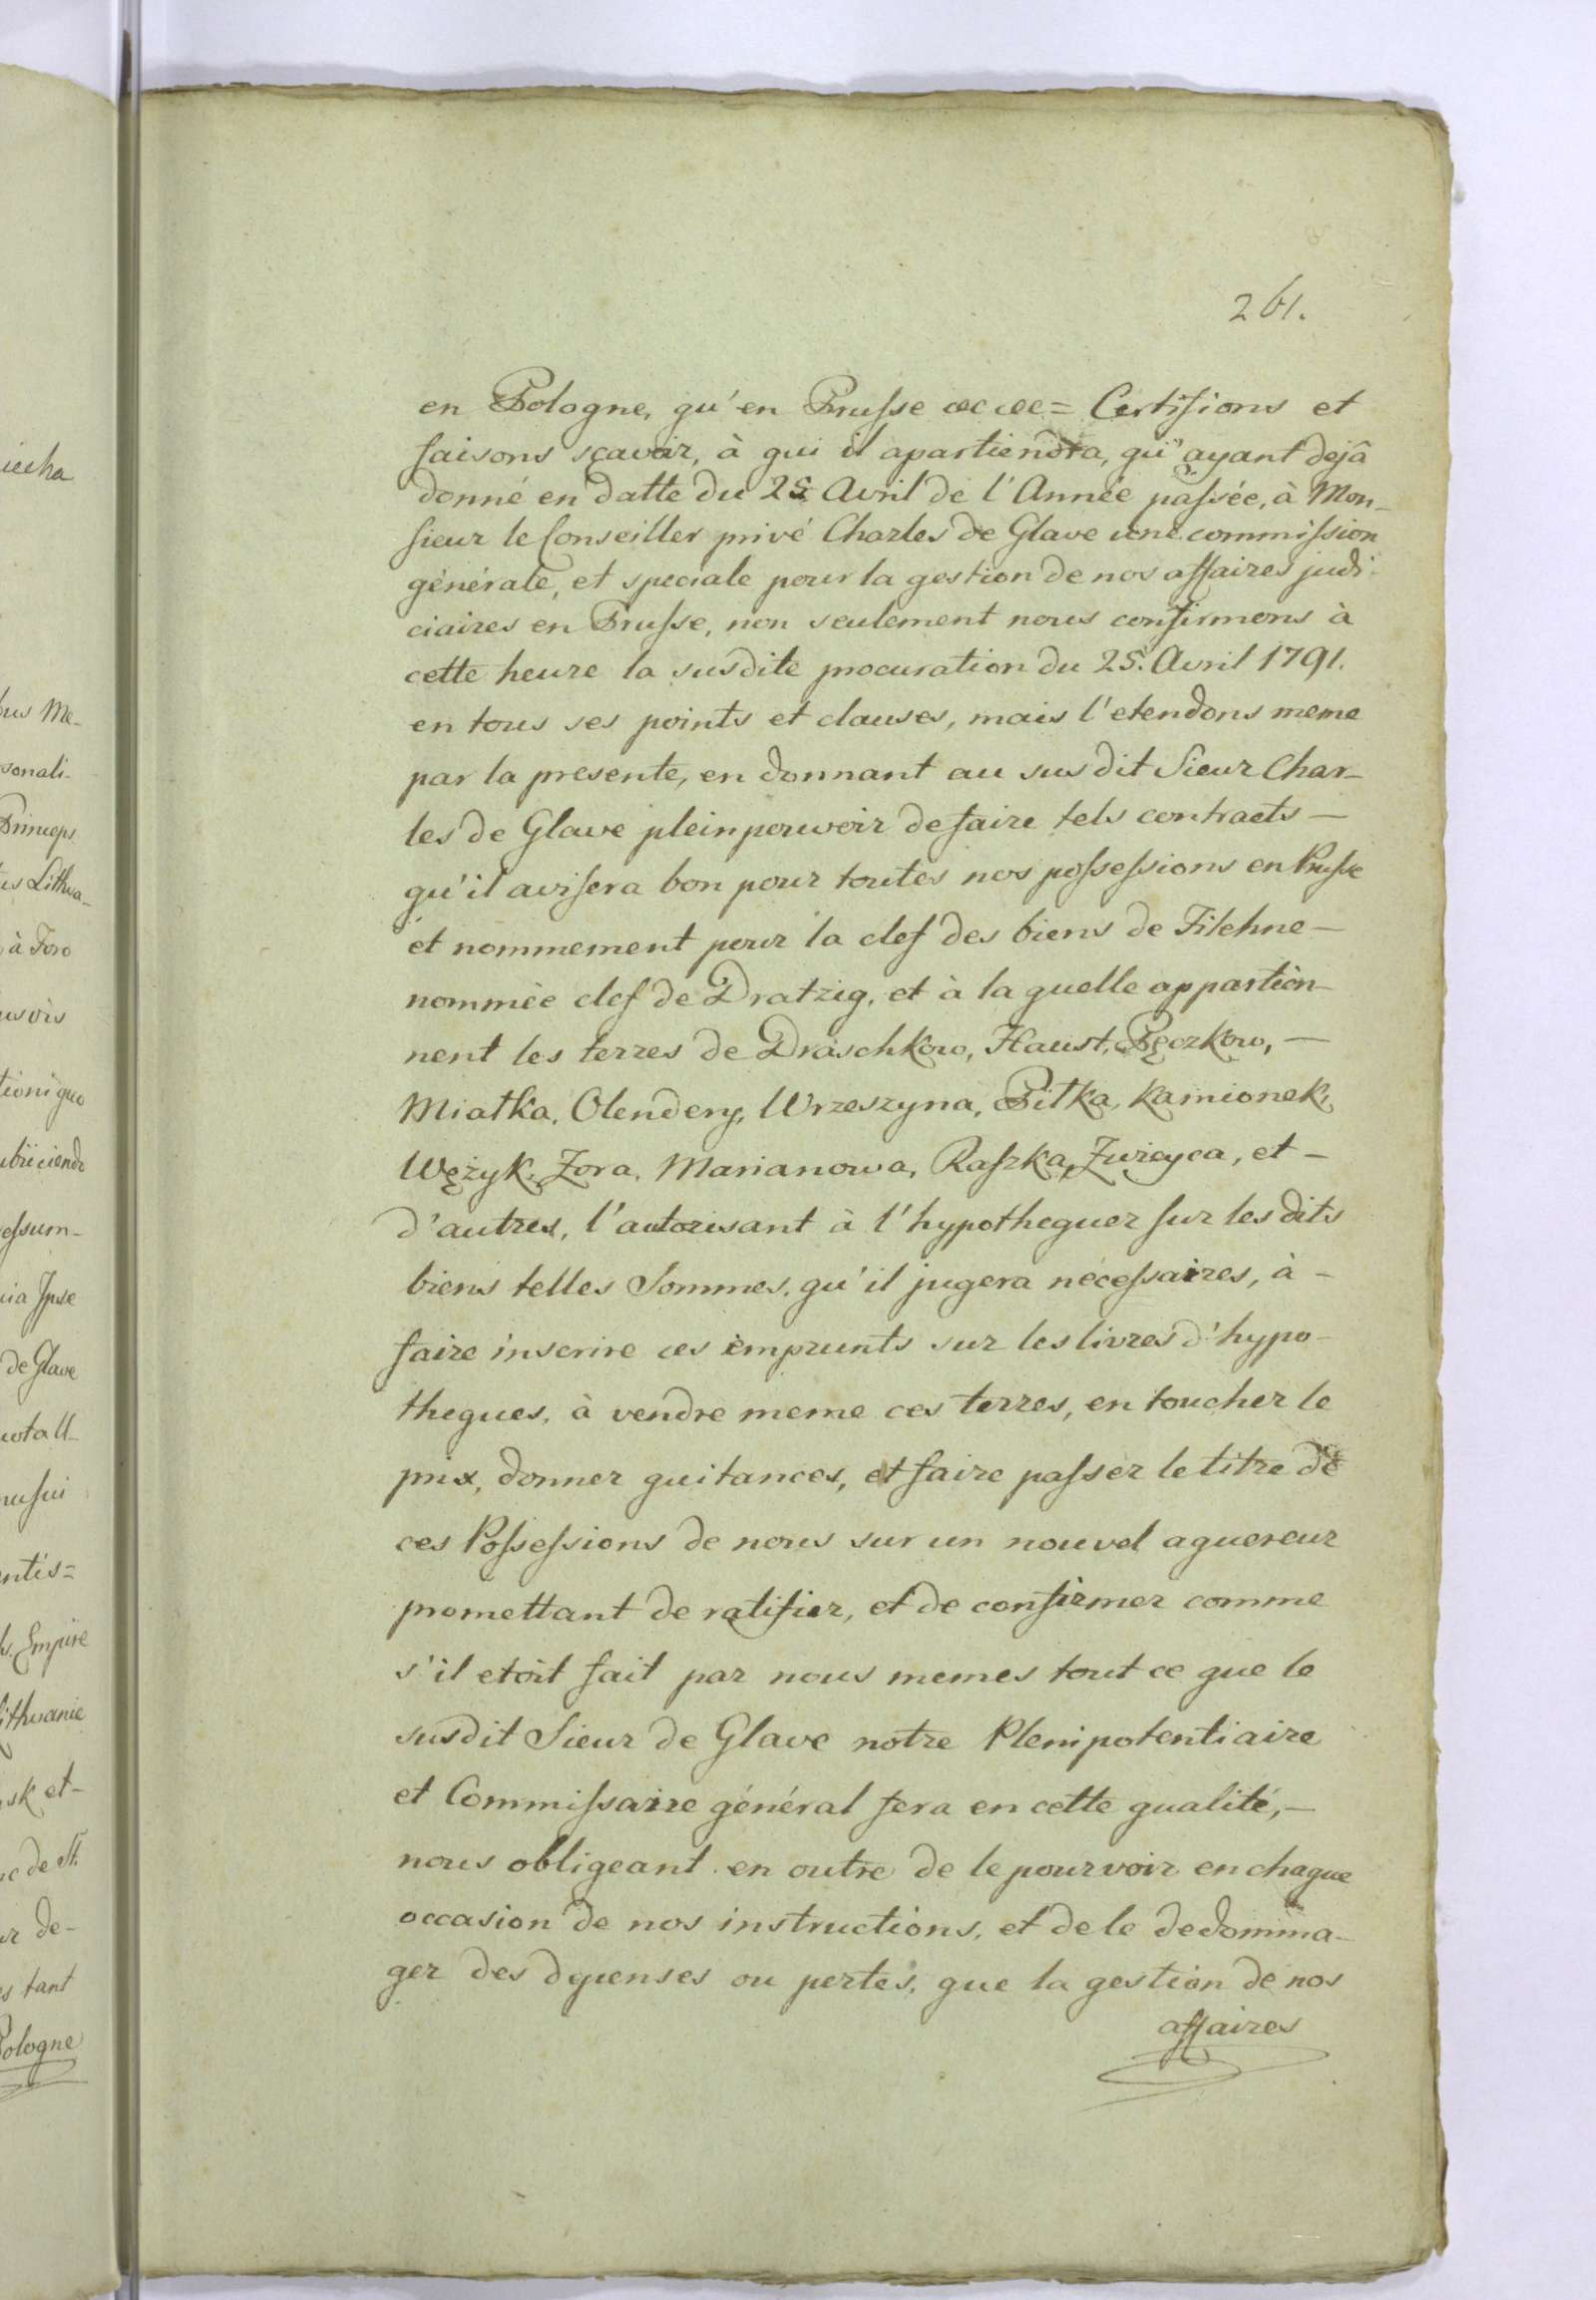 261.
en Pologne, qu'en Prusse &c &c = Certifions et
faisons sçavoir, à qui il apartiendra, qu'ayant dejâ
donné en datte du 25 Avril de l'Année passée, à Mon-
sieur le Conseiller privé Charles de Glave une commission
générale, et speciale pour la gestion de nos affaires judi-
ciaires en Prusse, non seulement nous confirmons à
cette heure la susdite procuration du 25. Avril 1791.
en tous ses points et clauses, mais l'etendons meme
par la presente, en donnant au susdit Sieur Char-
les de Glave pleinpouvoir de faire tels contracts —
qu'il avisera bon pour toutes nos possessions en Prusse
et nommement pour la clef des biens de Filehne —
nommée clef de Dratzig, et à la quelle appartien-
nent les terres de Draschkow, Haust, Pęczkow, —
Miatka, Olendery, Wrzeszyna, Pitka, Kamionek,
Wężyk, Zora, Marianowa, Raszka, Zwieyca, et —
d'autres, l'autorisant à l'hypothequer sur les dits
biens telles Sommes, qu'il jugera nécessaires, à —
faire inscrire ces emprunts sur les livres d'hypo-
theques, à vendre meme ces terres, en toucher le
prix, donner quitances, et faire passer le titre de
ces Possessions de nous sur un nouvel aquereur
promettant de ratifier, et de confirmer comme
s'il etoit fait par nous memes tout ce que le
susdit Sieur de Glave notre Plenipotentiaire
et Commissaire général fera en cette qualité, —
nous obligeant en outre de le pourvoir en chaque
occasion de nos instructions, et de le dedomma-
ger des dpenses ou pertes, que la gestion de nos
affaires
iecha
bus Me-
sonali-
Princeps
us Lithua-
à Foro
usvis
tioni quo
ubiiciendo
essum-
uia Ipse
de Glave
nusui
entis=
Empire
ithuanie
sk et-
de St.
de-
es tant
Pologne